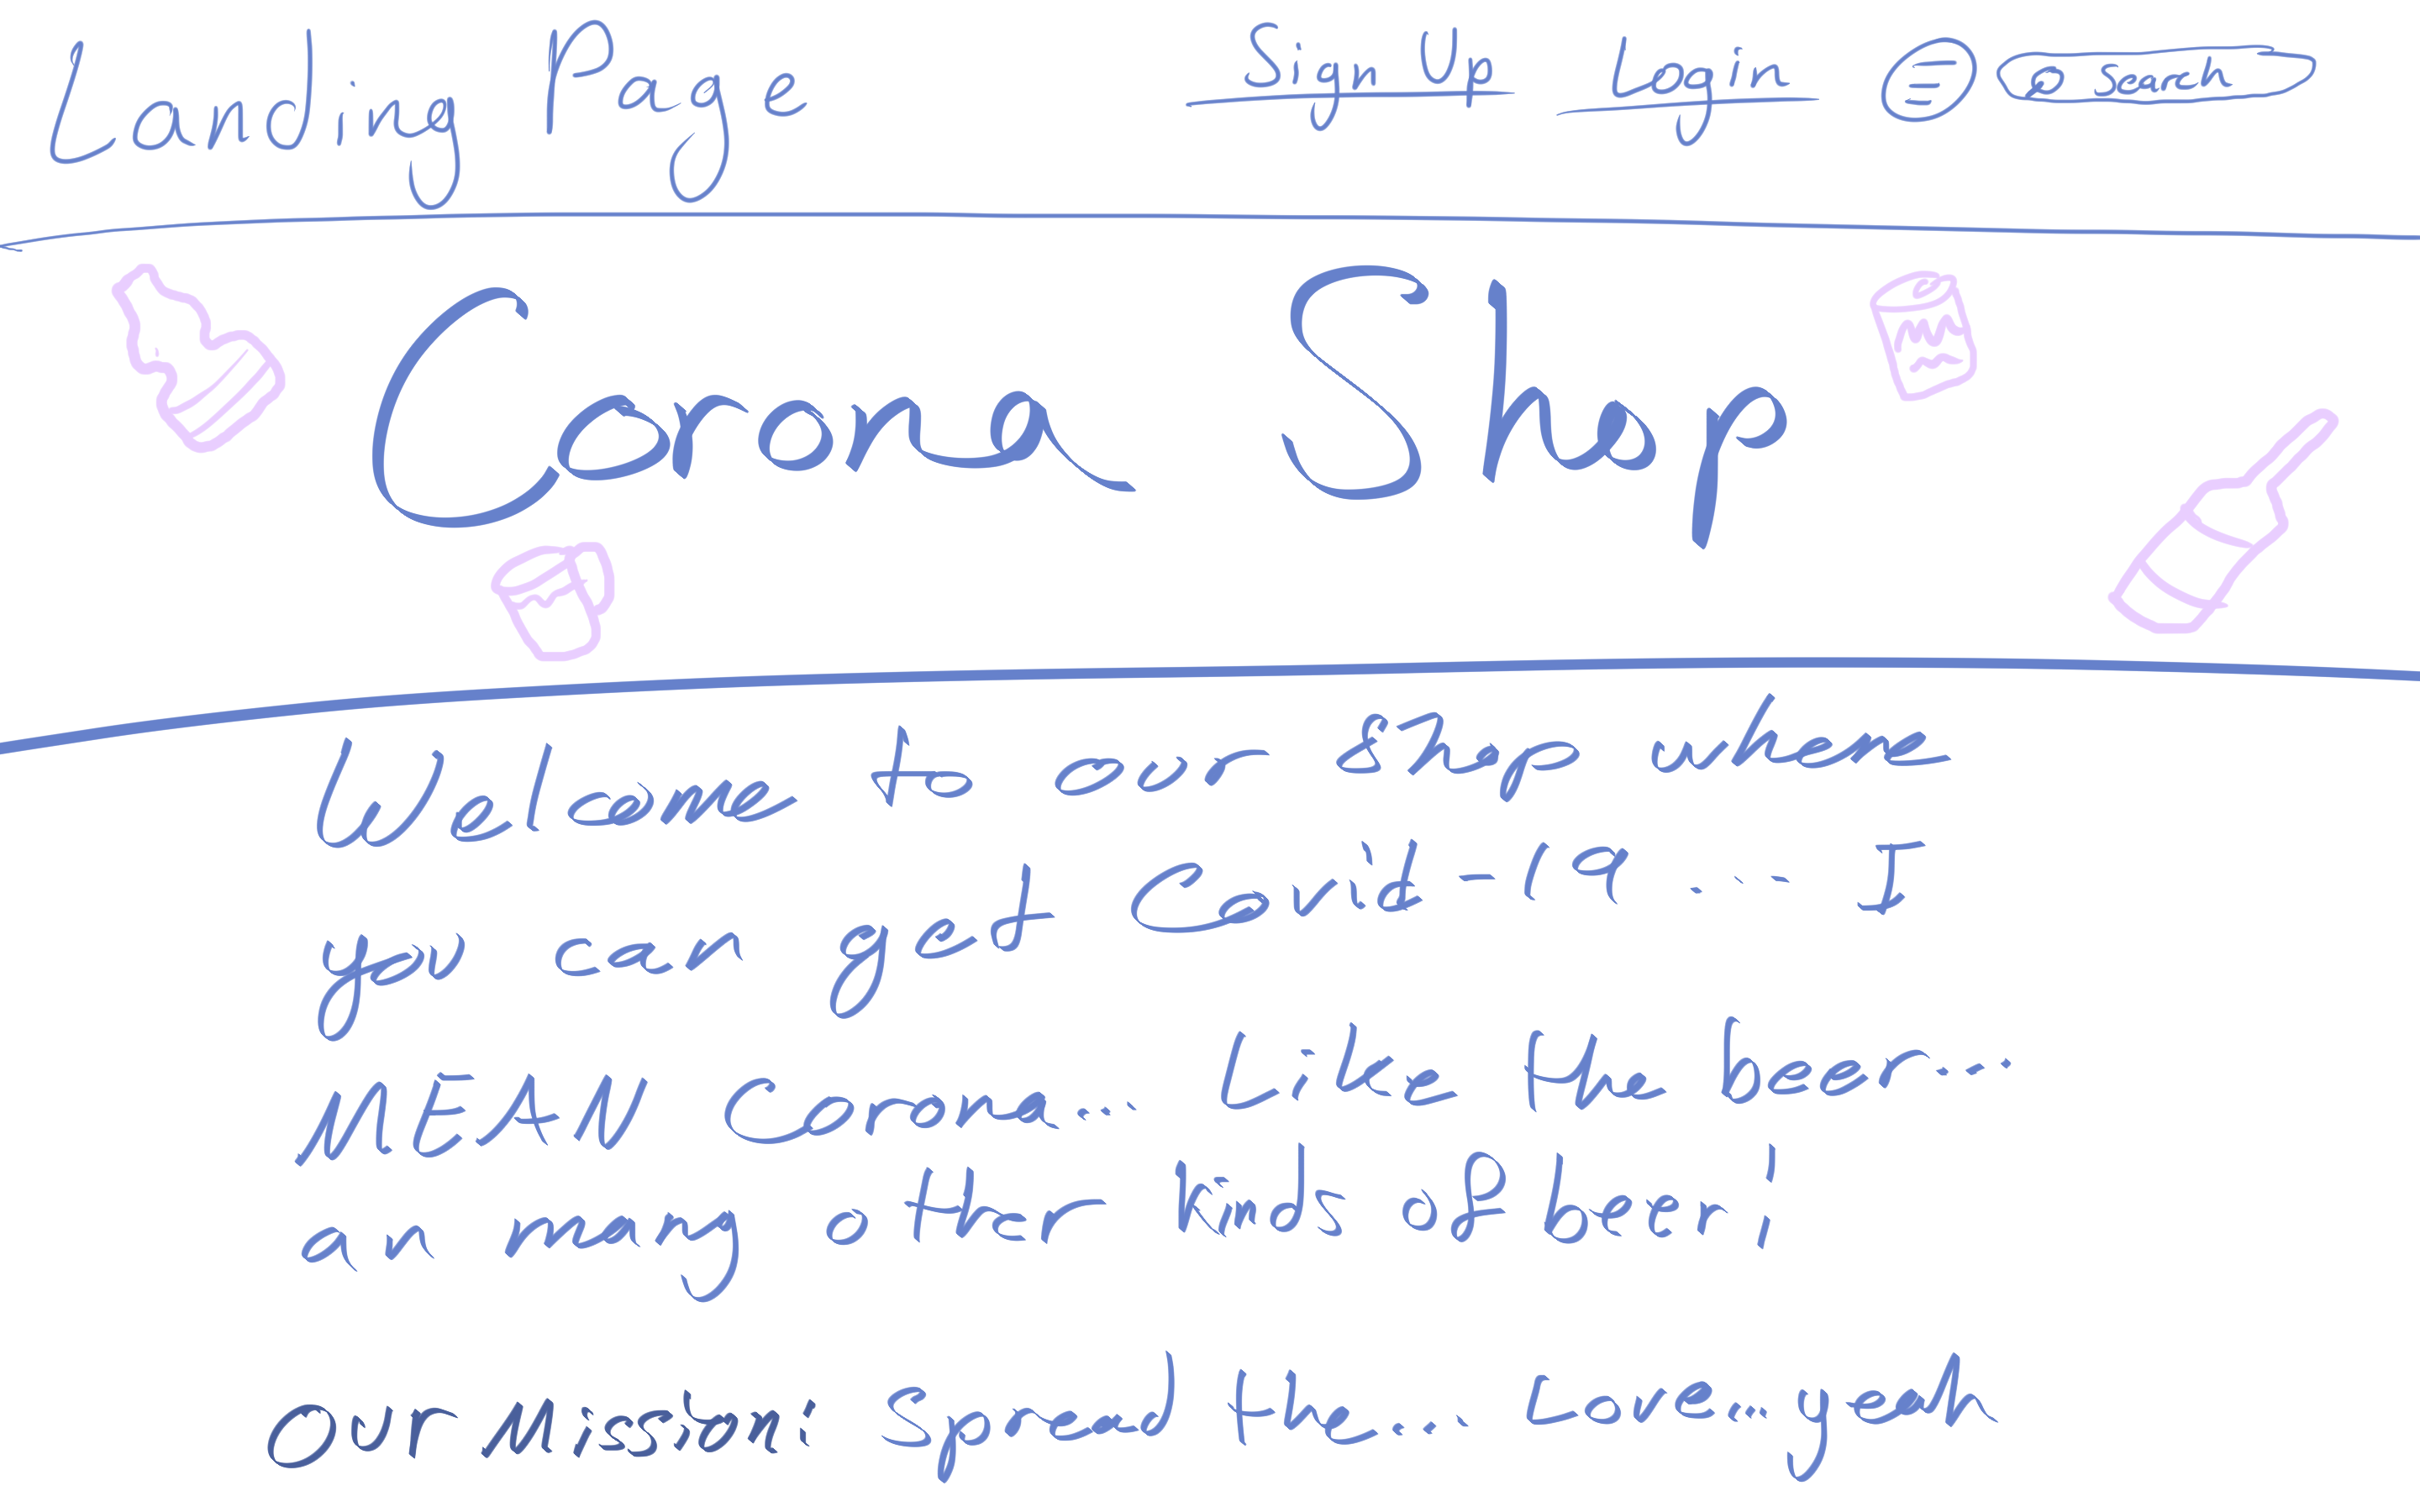 Landing Page Sign Up Login Search
Corona Shop
Welcome to our shop where
you can get Covid-19 ... I
MEAN Corona... Like the beer...
an many other kinds of beer!
Our Mission: Spread the... Love... yeah